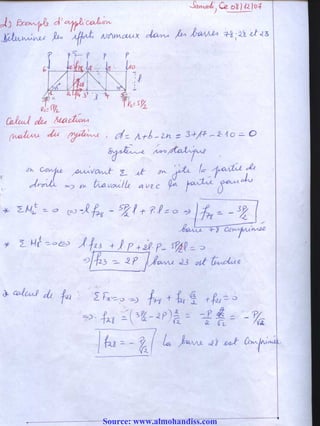 Samedi, Le 08/12/07
d) Exemple d'application
Déterminer les efforts normaux dans les barres 78, 28 et 23
P P P P
6 10
1 2 3 4 5
l
R1=5P/2 R5=5P/2
Calcul des réactions
nature du système : d = r+b-2n = 3+17-2·10 = 0
Système isostatique
on coupe suivant Σ et on jète la partie de
droite => on travaille avec la partie gauche
* ΣM2 = 0 <=> -l f78 - 5P/2 l + P.l = 0 => f78 = -3P/2
barre 78 comprimée
* ΣM8 = 0 <=> l f23 + l P + 2l P - 5P/2 2l = 0
=> f23 = 2P / barre 23 est tendue
* calcul de f28 : ΣFx = 0 => f78 + f28 √2/2 + f23 = 0
=> f28 = (3P/2 - 2P) 2/√2 = -P/2 2/√2 = -P/√2
f28 = -P/√2 / la barre 28 est comprimée
Source: www.almohandiss.com